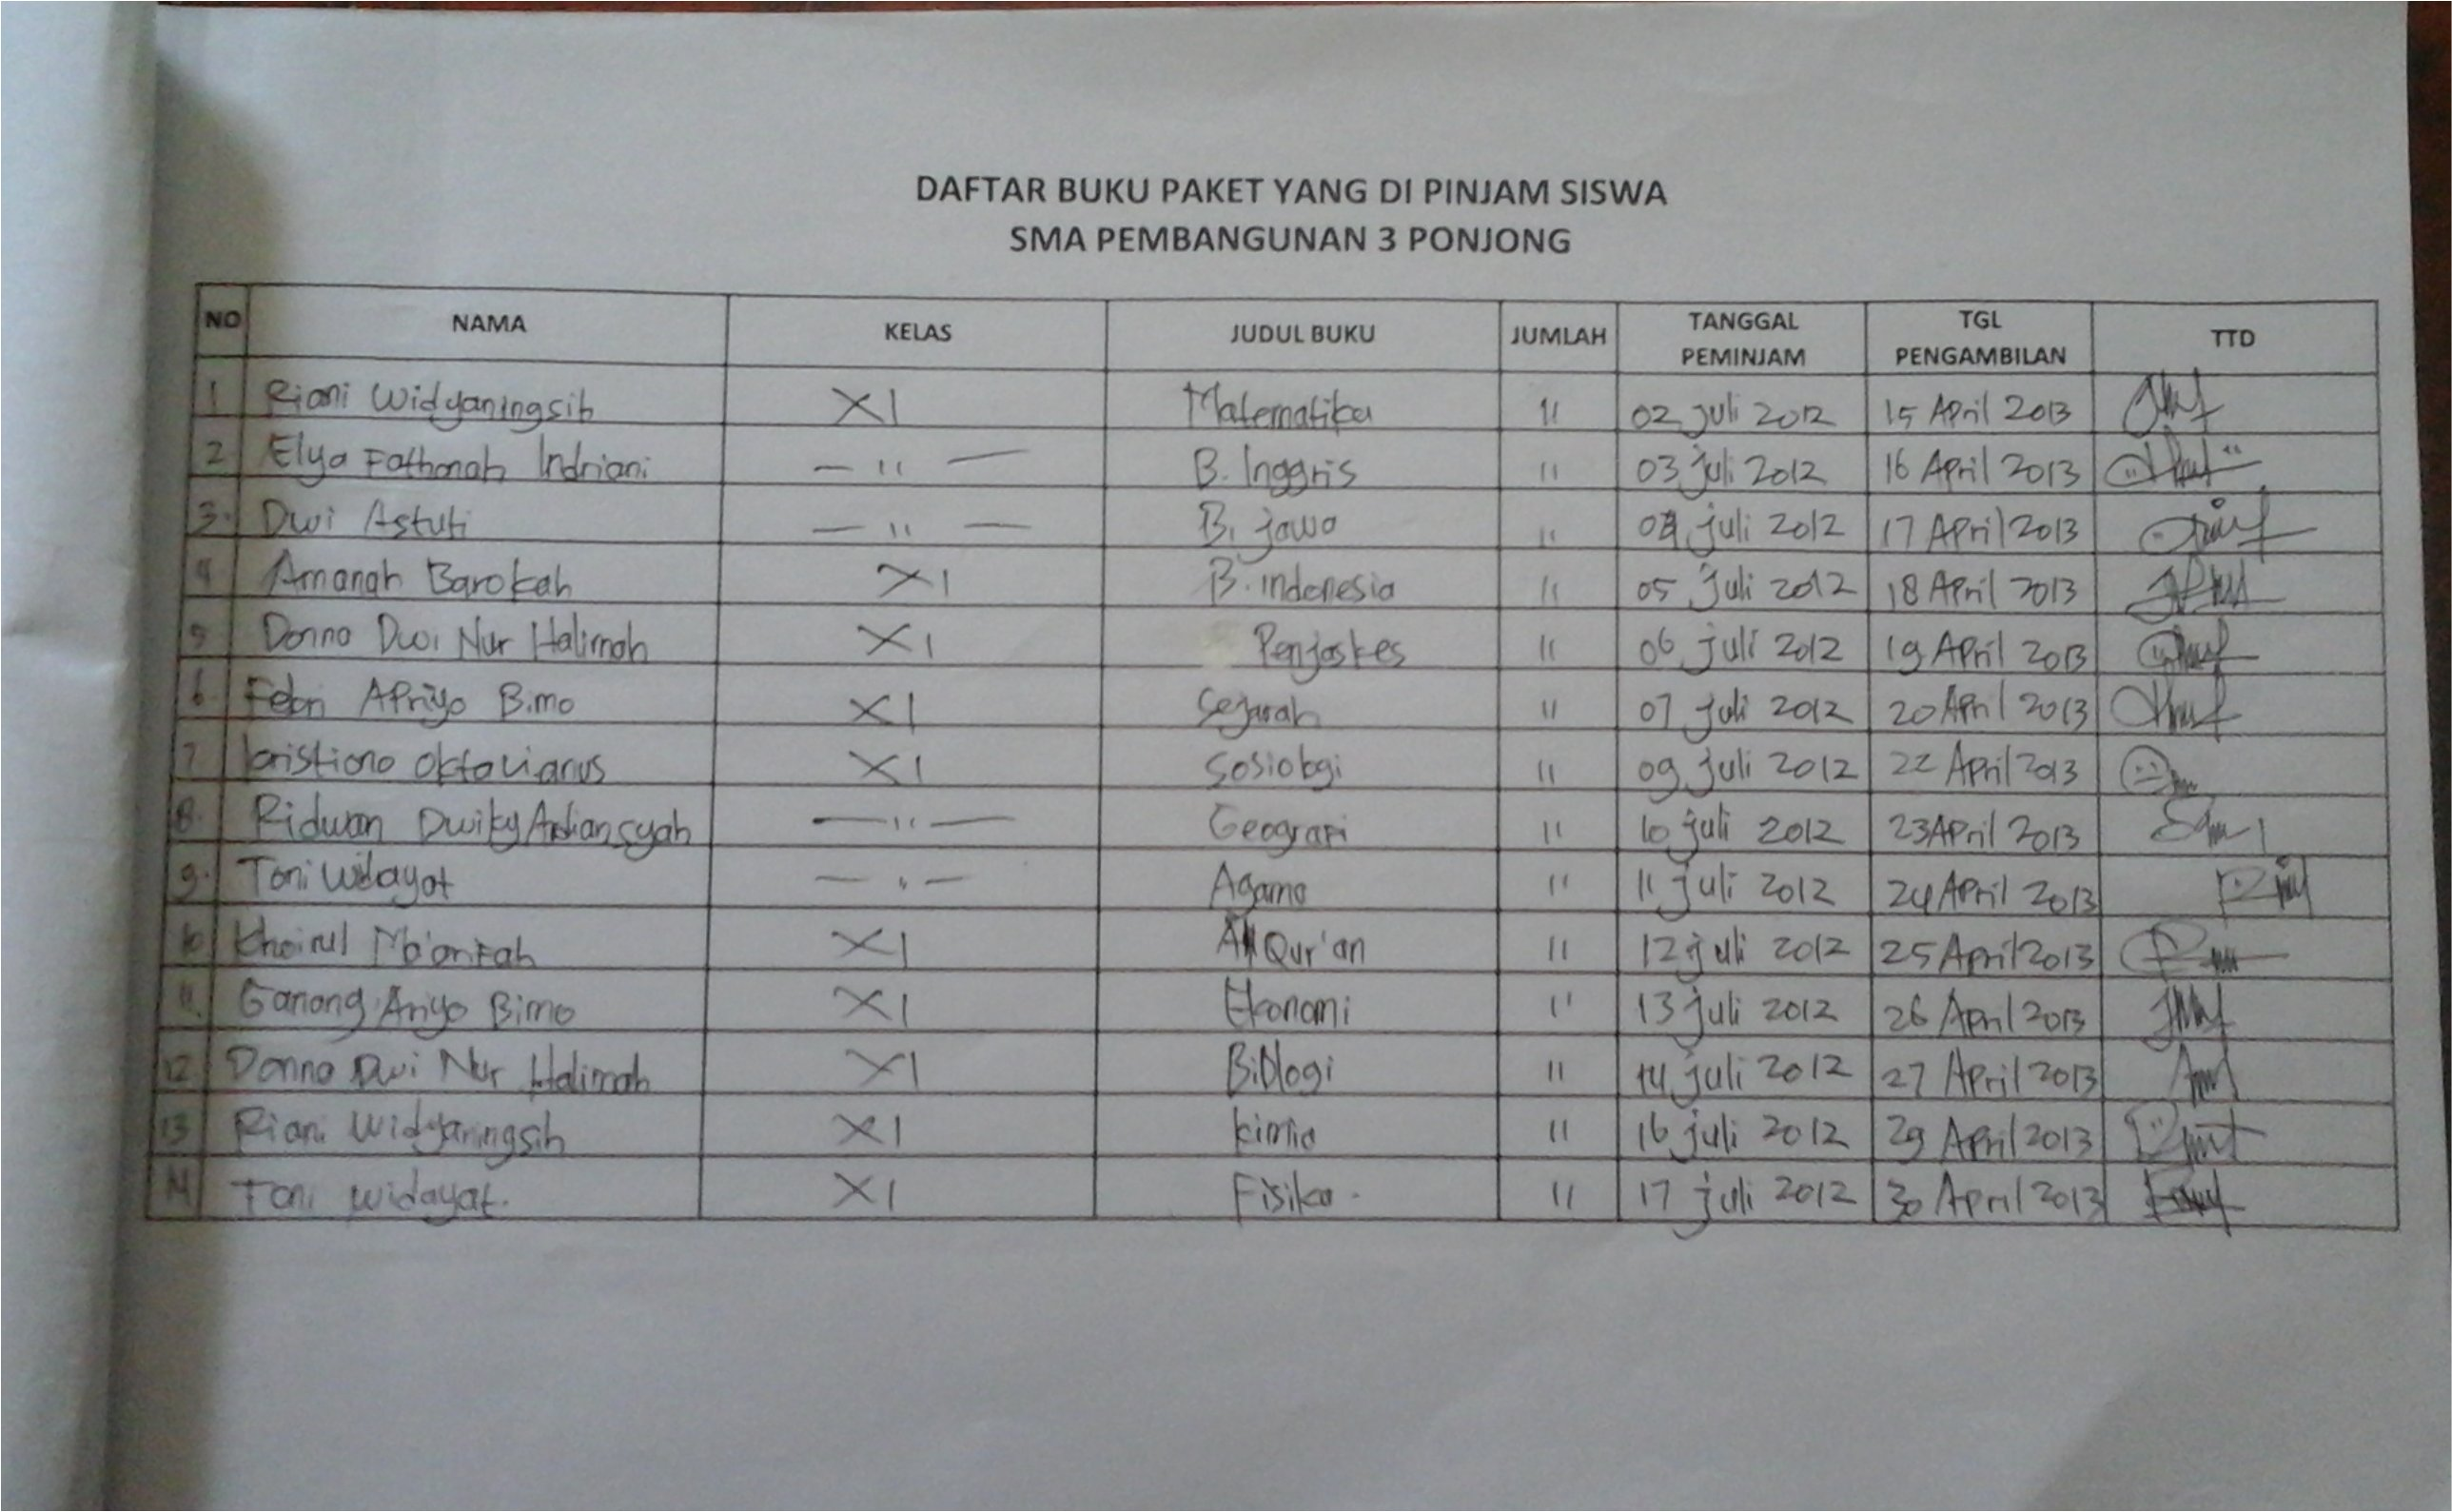 DAFTAR BUKU PAKET YANG DI PINJAM SISWA
SMA PEMBANGUNAN 3 PONJONG
NO NAMA KELAS JUDUL BUKU JUMLAH TANGGAL PEMINJAM TGL PENGAMBILAN TTD
1 Riani Widyaningsih XI Matematika 11 02 juli 2012 15 April 2013
2 Elya Fathonah Indriani — " — B. Inggris 11 03 juli 2012 16 April 2013
3. Dwi Astuti — " — B. jawa 11 04 juli 2012 17 April 2013
4 Amanah Barokah XI B. indonesia 11 05 juli 2012 18 April 2013
5 Donna Dwi Nur Halimah XI Penjaskes 11 06 juli 2012 19 April 2013
6. Febri Apriyo Bimo XI Sejarah 11 07 juli 2012 20 April 2013
7 kristiono Oktavianus XI Sosiologi 11 09 juli 2012 22 April 2013
8. Ridwan Dwiky Ardiansyah — " — Geografi 11 10 juli 2012 23 April 2013
9. Toni Widayat — " — Agama 11 11 juli 2012 24 April 2013
10 Khoirul Ma'arifah XI Al Qur'an 11 12 juli 2012 25 April 2013
11. Ganang Ariyo Bimo XI Ekonomi 11 13 juli 2012 26 April 2013
12 Donna Dwi Nur Halimah XI Biologi 11 14 juli 2012 27 April 2013
13 Riani Widyaningsih XI kimia 11 16 juli 2012 29 April 2013
14 Toni widayat. XI Fisika. 11 17 juli 2012 30 April 2013